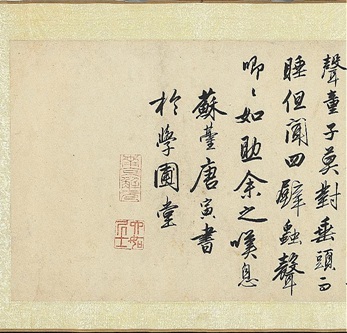 聲童子莫對垂頭而
睡但聞四壁蟲聲
唧〻如助余之嘆息
蘇臺唐寅書
於學圃堂
六如居士